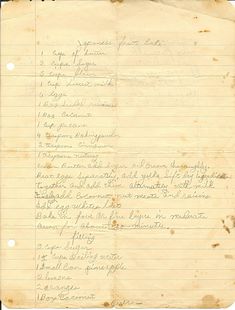 Japanese Fruit Cake
1 Cup of butter
2 Cups Sugar
3 Cups flour
1 Cup Sweet milk
4 eggs
1 Box Seeded raisins
1 Box Coconut
1 Cup pecans
4 teaspoons Baking powder
2 teaspoons Cinnamon
1 teaspoon nutmeg
butter add sugar and cream thoroughly
Beat eggs separately, add yolks. Sift dry ingredients
together and add them alternately with milk
add coconut nut meats and raisins
add egg whites last
Bake in four layers in moderate
oven for about minutes
filling
2 Cups Sugar
1 Cups Boiling water
1 Small Can pineapple
2 lemons
2 oranges
1 Box Coconut